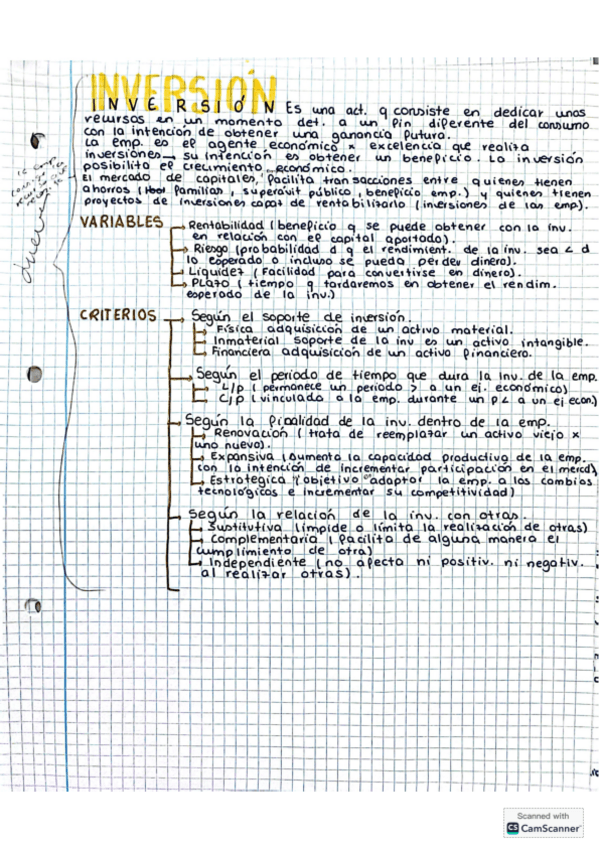 INVERSIÓN
INVERSIÓN Es una act. q consiste en dedicar unos
recursos en un momento det. a un fin diferente del consumo
con la intención de obtener una ganancia futura.
La emp. es el agente económico x excelencia que realiza
inversiones → su intención es obtener un beneficio. La inversión
posibilita el crecimiento económico.
El mercado de capitales, facilita transacciones entre quienes tienen
ahorros (familias, superávit público, beneficio emp.) y quienes tienen
proyectos de inversiones capaz de rentabilizarlo (inversiones de las emp).
VARIABLES
Rentabilidad (beneficio q se puede obtener con la inv.
en relación con el capital aportado).
Riesgo (probabilidad d q el rendimient. de la inv. sea < d
lo esperado o incluso se pueda perder dinero).
Liquidez (Facilidad para convertirse en dinero).
Plazo (tiempo q tardaremos en obtener el rendim.
esperado de la inv.)
CRITERIOS → Según el soporte de inversión.
Física adquisición de un activo material.
Inmaterial soporte de la inv es un activo intangible.
Financiera adquisición de un activo financiero.
Según el periodo de tiempo que dura la inv. de la emp.
L/p (permanece un periodo > a un ej. económico)
C/p (vinculado a la emp. durante un p < a un ej econ.)
Según la finalidad de la inv. dentro de la emp.
Renovación (trata de reemplazar un activo viejo x
uno nuevo).
Expansiva (aumenta la capacidad productiva de la emp.
con la intención de incrementar participación en el mercd)
Estratégica (objetivo adaptar la emp. a los cambios
tecnológicos e incrementar su competitividad)
Según la relación de la inv. con otras.
Sustitutiva (impide o límita la realización de otras)
Complementaria (facilita de alguna manera el
cumplimiento de otra)
Independiente (no afecta ni positiv. ni negativ.
al realizar otras).
Scanned with
CS CamScanner